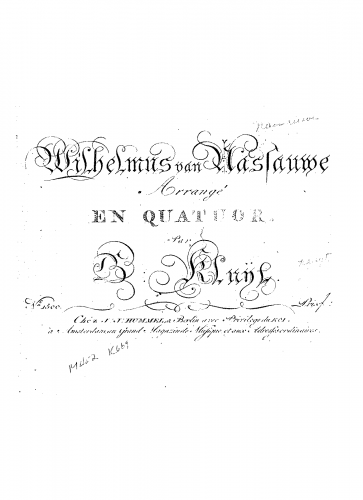 Wilhelmus van Nassauwe
Arrangé
EN QUATUOR.
Par
B: Kluÿ
No. 1500. Prix f
Chéz J. J. HUMMEL, à Berlin avec Privilege du ROI,
à Amsterdam au Grand Magazin de Musique et aux Adresses ordinaires.
K 669